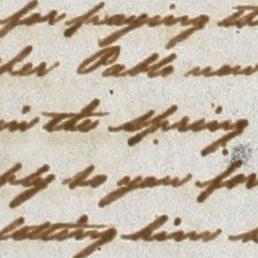 for paying th
her Pablo now
in the spring
ply to you for
letting him s